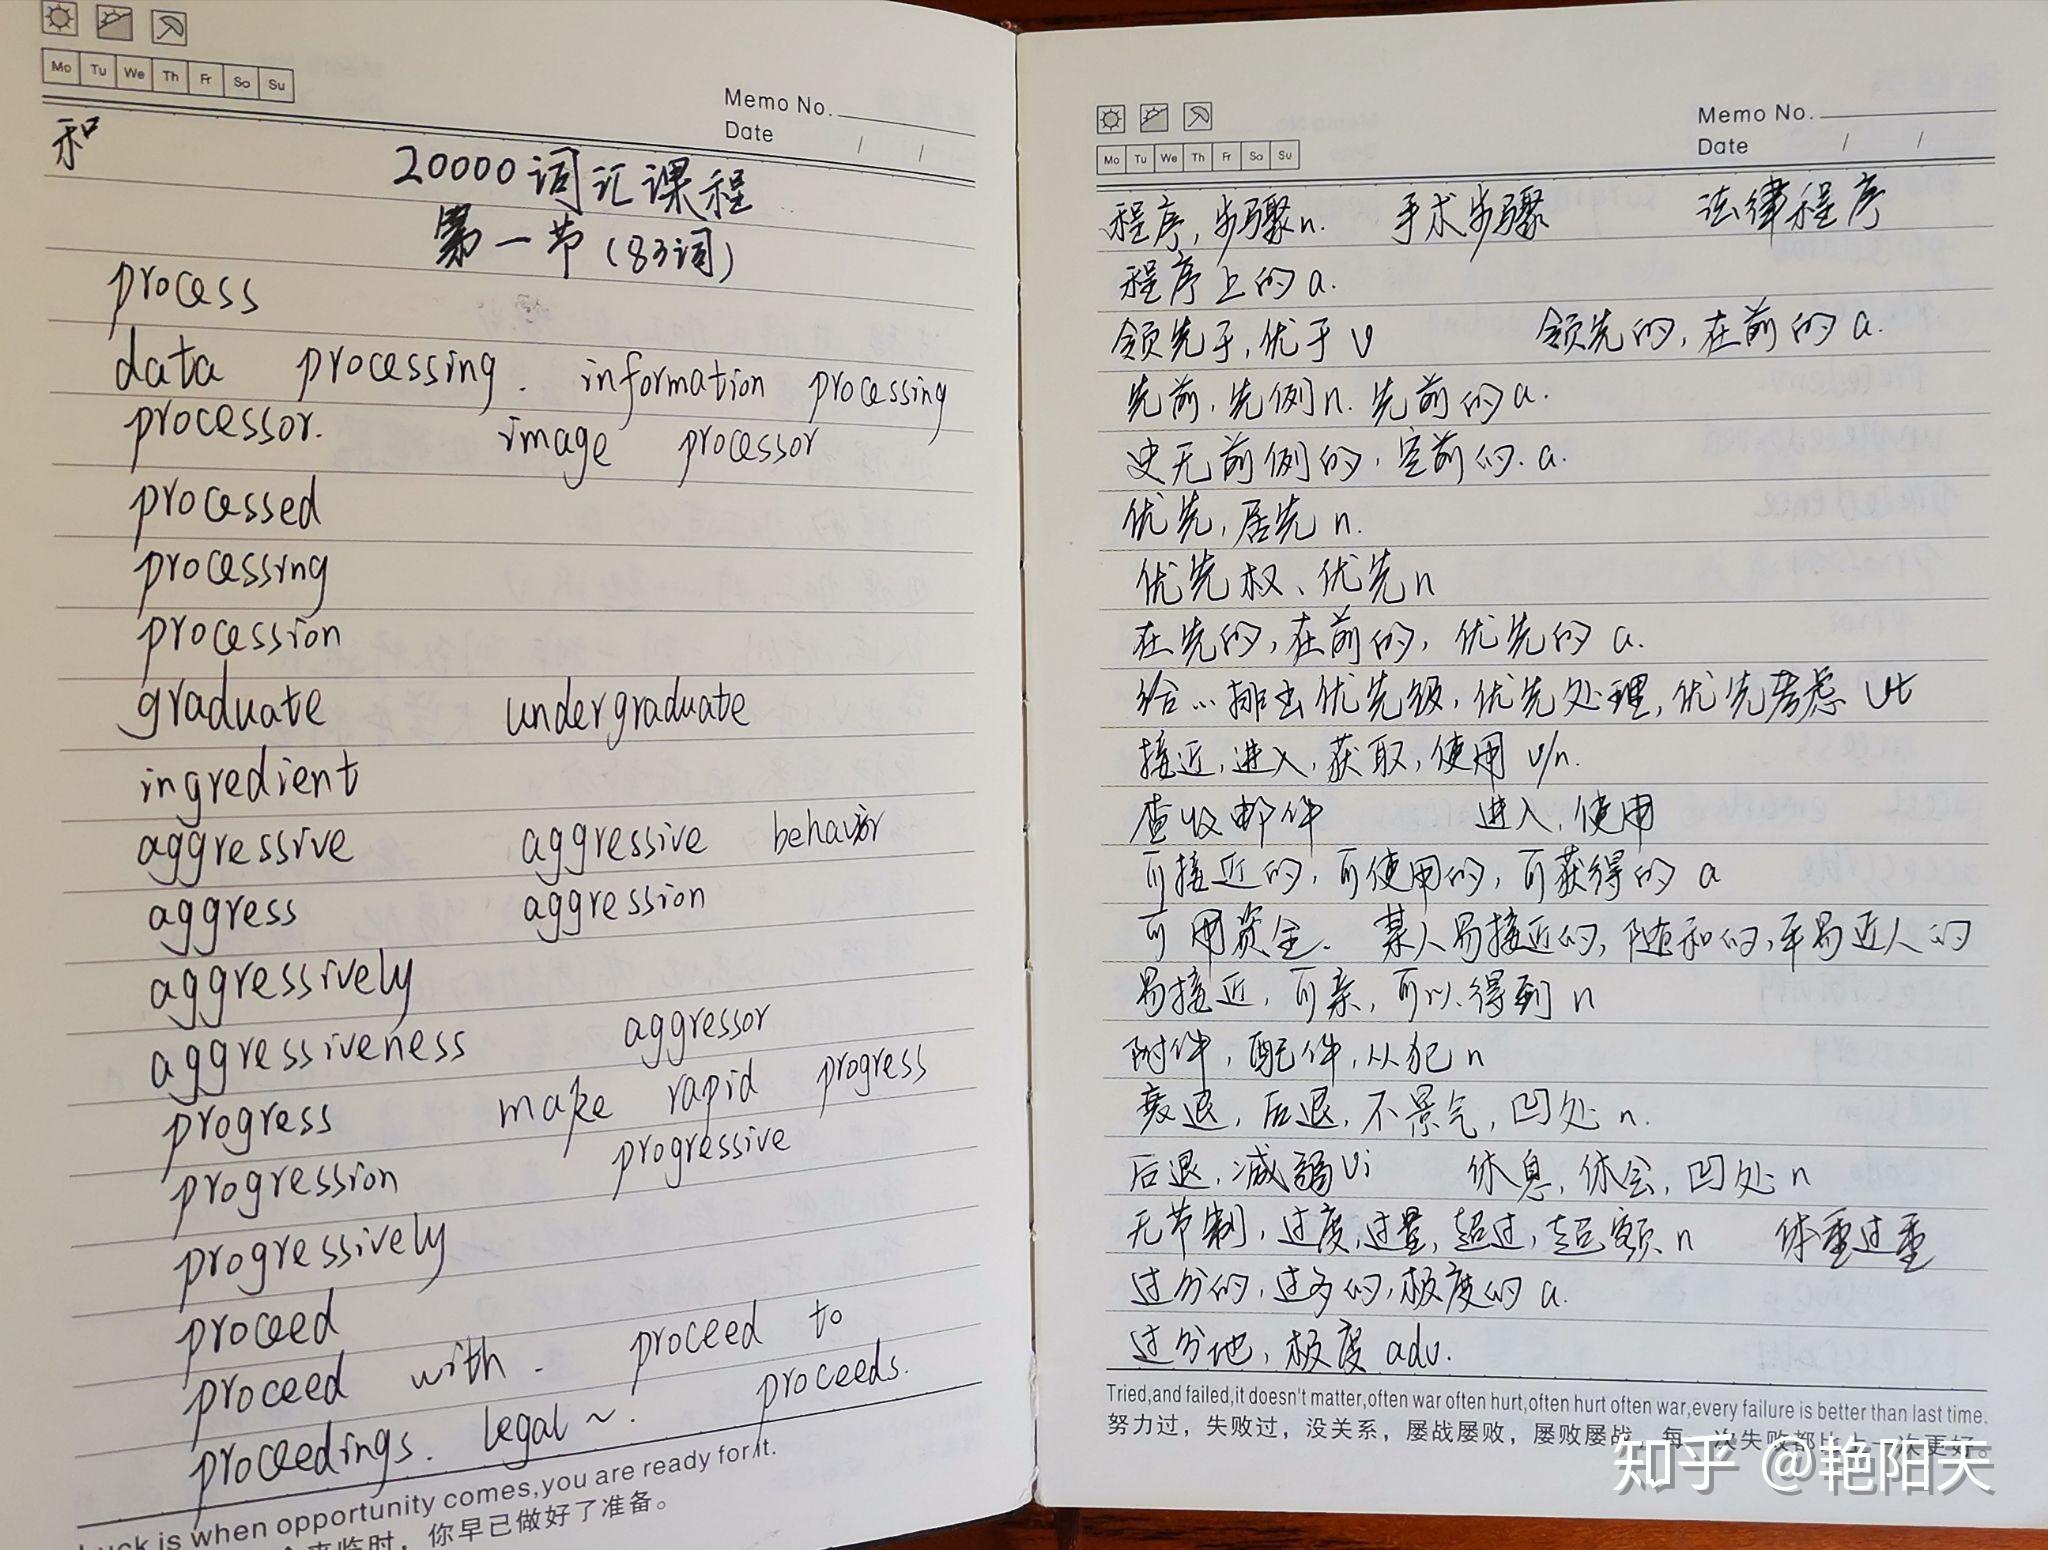 Mo Tu We Th Fr Sa Su
Memo No.
Date / /
和
20000词汇课程
第一节(83词)
process
data processing. information processing
processor. image processor
processed
processing
procession
graduate undergraduate
ingredient
aggressive aggressive behavior
aggress aggression
aggressively
aggressiveness aggressor
progress make rapid progress
progression progressive
progressively
proceed
proceed with. proceed to
proceedings. legal ~. proceeds.
Luck is when opportunity comes,you are ready for it.
来临时，你早已做好了准备。
Memo No.
Date / /
Mo Tu We Th Fr Sa Su
程序,步骤n. 手术步骤 法律程序
程序上的 a.
领先于,优于 v 领先的,在前的 a.
先前,先例n. 先前的a.
史无前例的,空前的.a.
优先,居先 n.
优先权、优先n
在先的,在前的,优先的 a.
给…排出优先级,优先处理,优先考虑 vt
接近,进入,获取,使用 v/n.
查收邮件 进入,使用
可接近的,可使用的,可获得的 a
可用资金. 某人易接近的,随和的,平易近人的
易接近,可亲,可以得到 n
附件,配件,从犯 n
衰退,后退,不景气,凹处 n.
后退,减弱vi 休息,休会,凹处 n
无节制,过度,过量,超过,超额 n 体重过重
过分的,过多的,极度的 a.
过分地,极度 adv.
Tried,and failed,it doesn't matter,often war often hurt,often hurt often war,every failure is better than last time.
努力过，失败过，没关系，屡战屡败，屡败屡战，每一次失败都比上一次更好。
知乎 @艳阳天